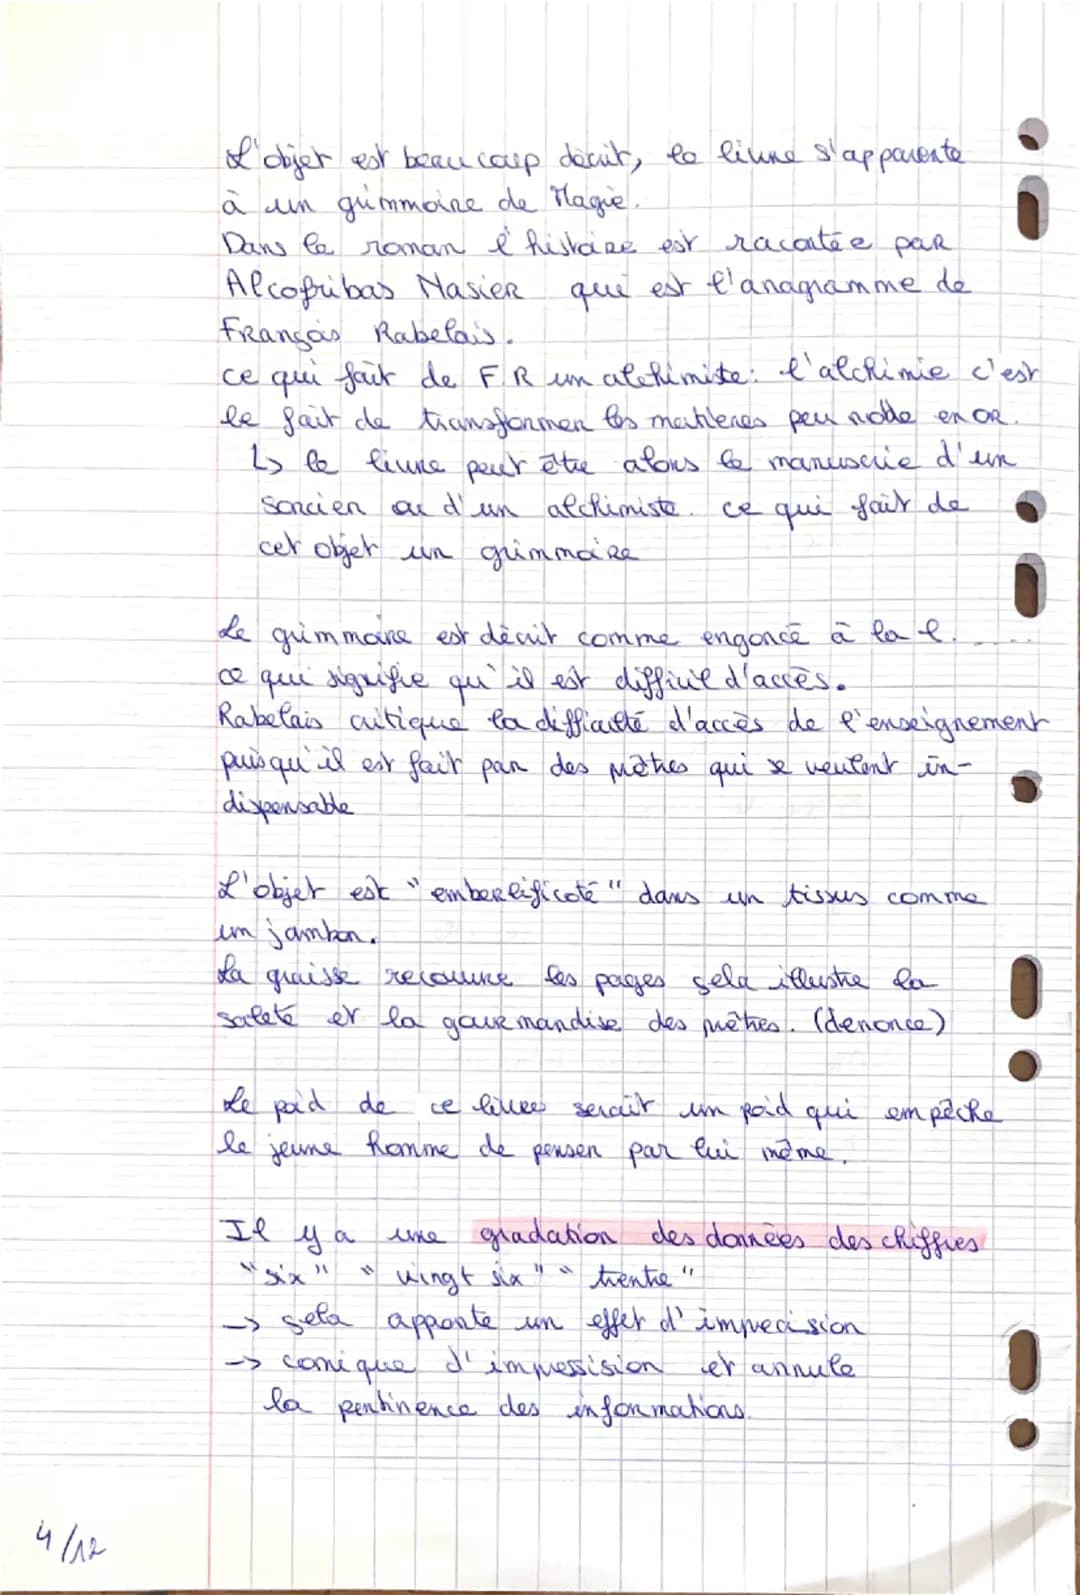 L'objet est beaucoup décrit, le livre s'apparente
à un grimmoire de Magie.
Dans le roman l'histoire est racontée par
Alcofribas Nasier qui est l'anagramme de
François Rabelais.
ce qui fait de F.R un alchimiste: l'alchimie c'est
le fait de transformer les matières peu noble en OR.
↳ le livre peut être alors le manuscrie d'un
sorcier ou d'un alchimiste. ce qui fait de
cet objet un grimmoire
Le grimmoire est décrit comme engoncé à la l. . . . .
ce qui signifie qu'il est difficil d'accès.
Rabelais critique la difficulté d'accès de l'enseignement
puisqu'il est fait par des prètres qui se veulent in-
dispensable
L'objet est "emberlificoté" dans un tissus comme
un jambon.
La graisse recouvre les pages çela illustre la
saleté et la gourmandise des prêtres. (denonce)
Le poid de ce livres serait un poid qui empêche
le jeune homme de penser par lui même.
Il y a une gradation des données des chiffres
"six" "vingt six" "trentre"
-> çela apporte un effet d'imprecision
-> comique d'impressision et annule
la pertinence des informations.
4/12